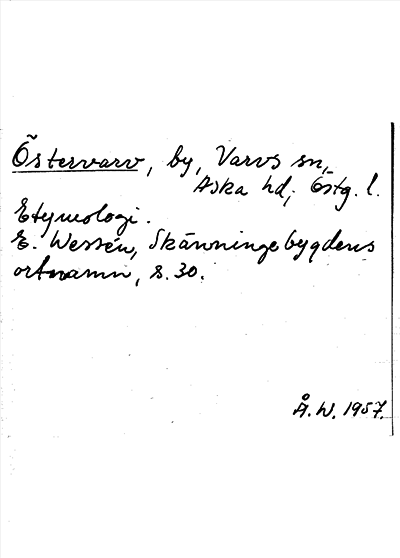 Östervarv, by, Varvs sn,
Aska hd, Östg. l.
Etymologi.
E. Wessén, Skänningebygdens
ortnamn, s. 30.
Å. W. 1957.